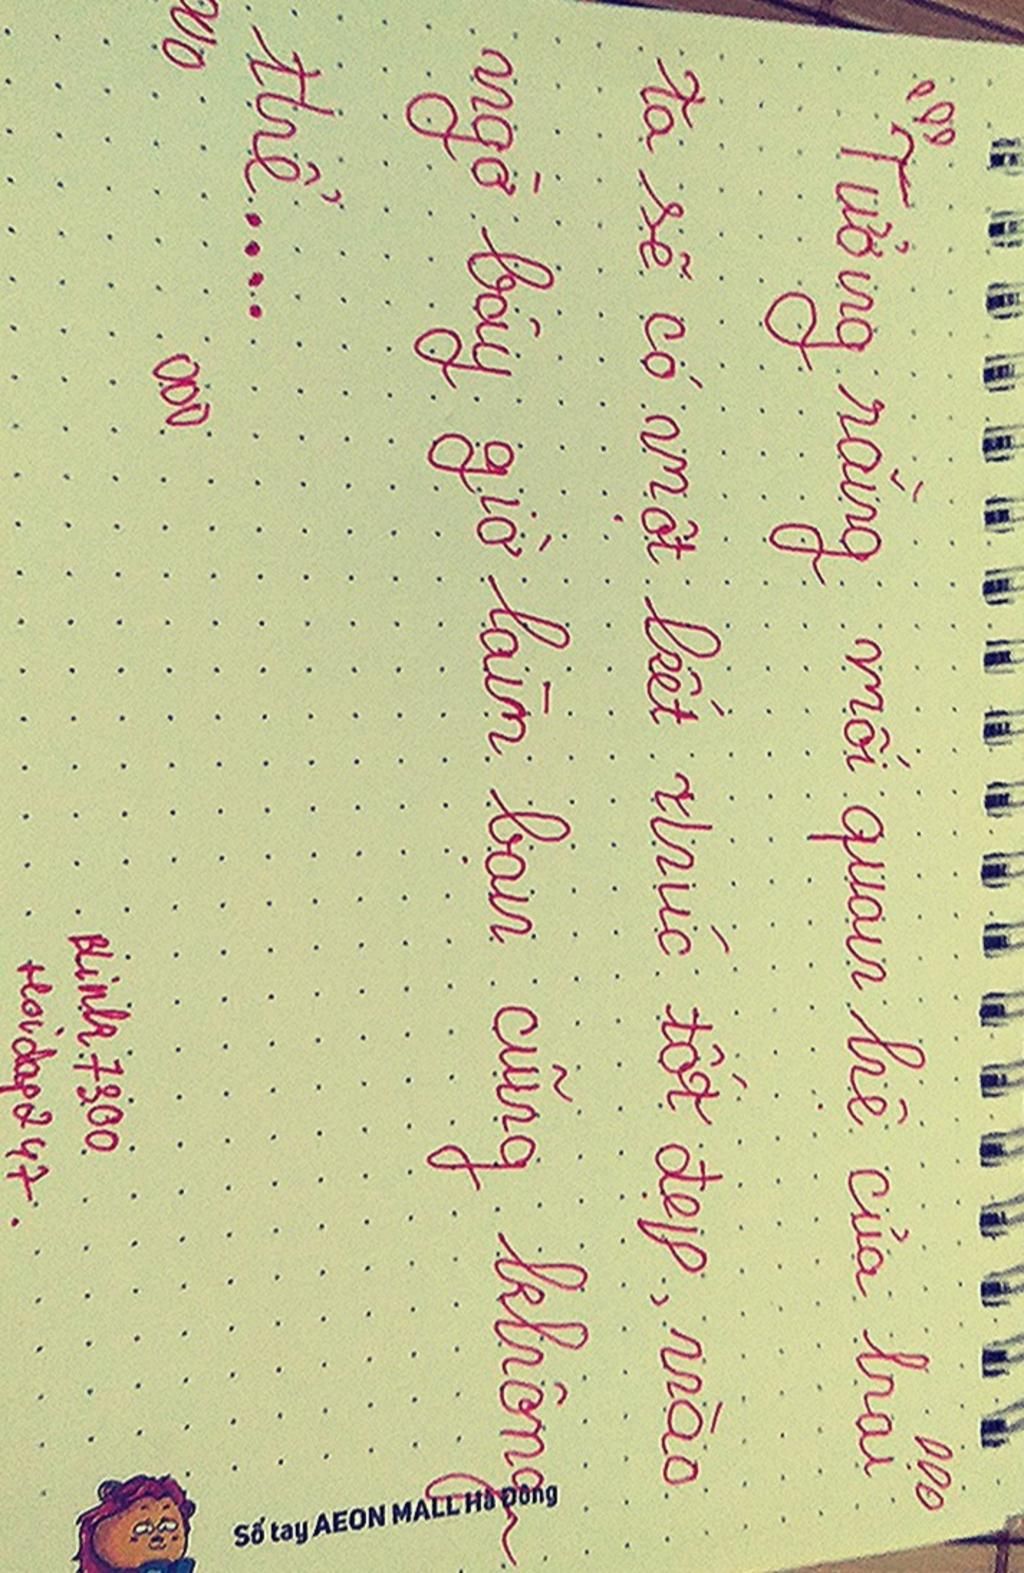 Tưởng rằng mối quan hệ của hai
ta sẽ có một kết thúc tốt đẹp, nào
ngờ bây giờ làm bạn cũng không
thể.....
Linh7300
Hoidap247.
Sổ tay AEON MALL Hà Đông